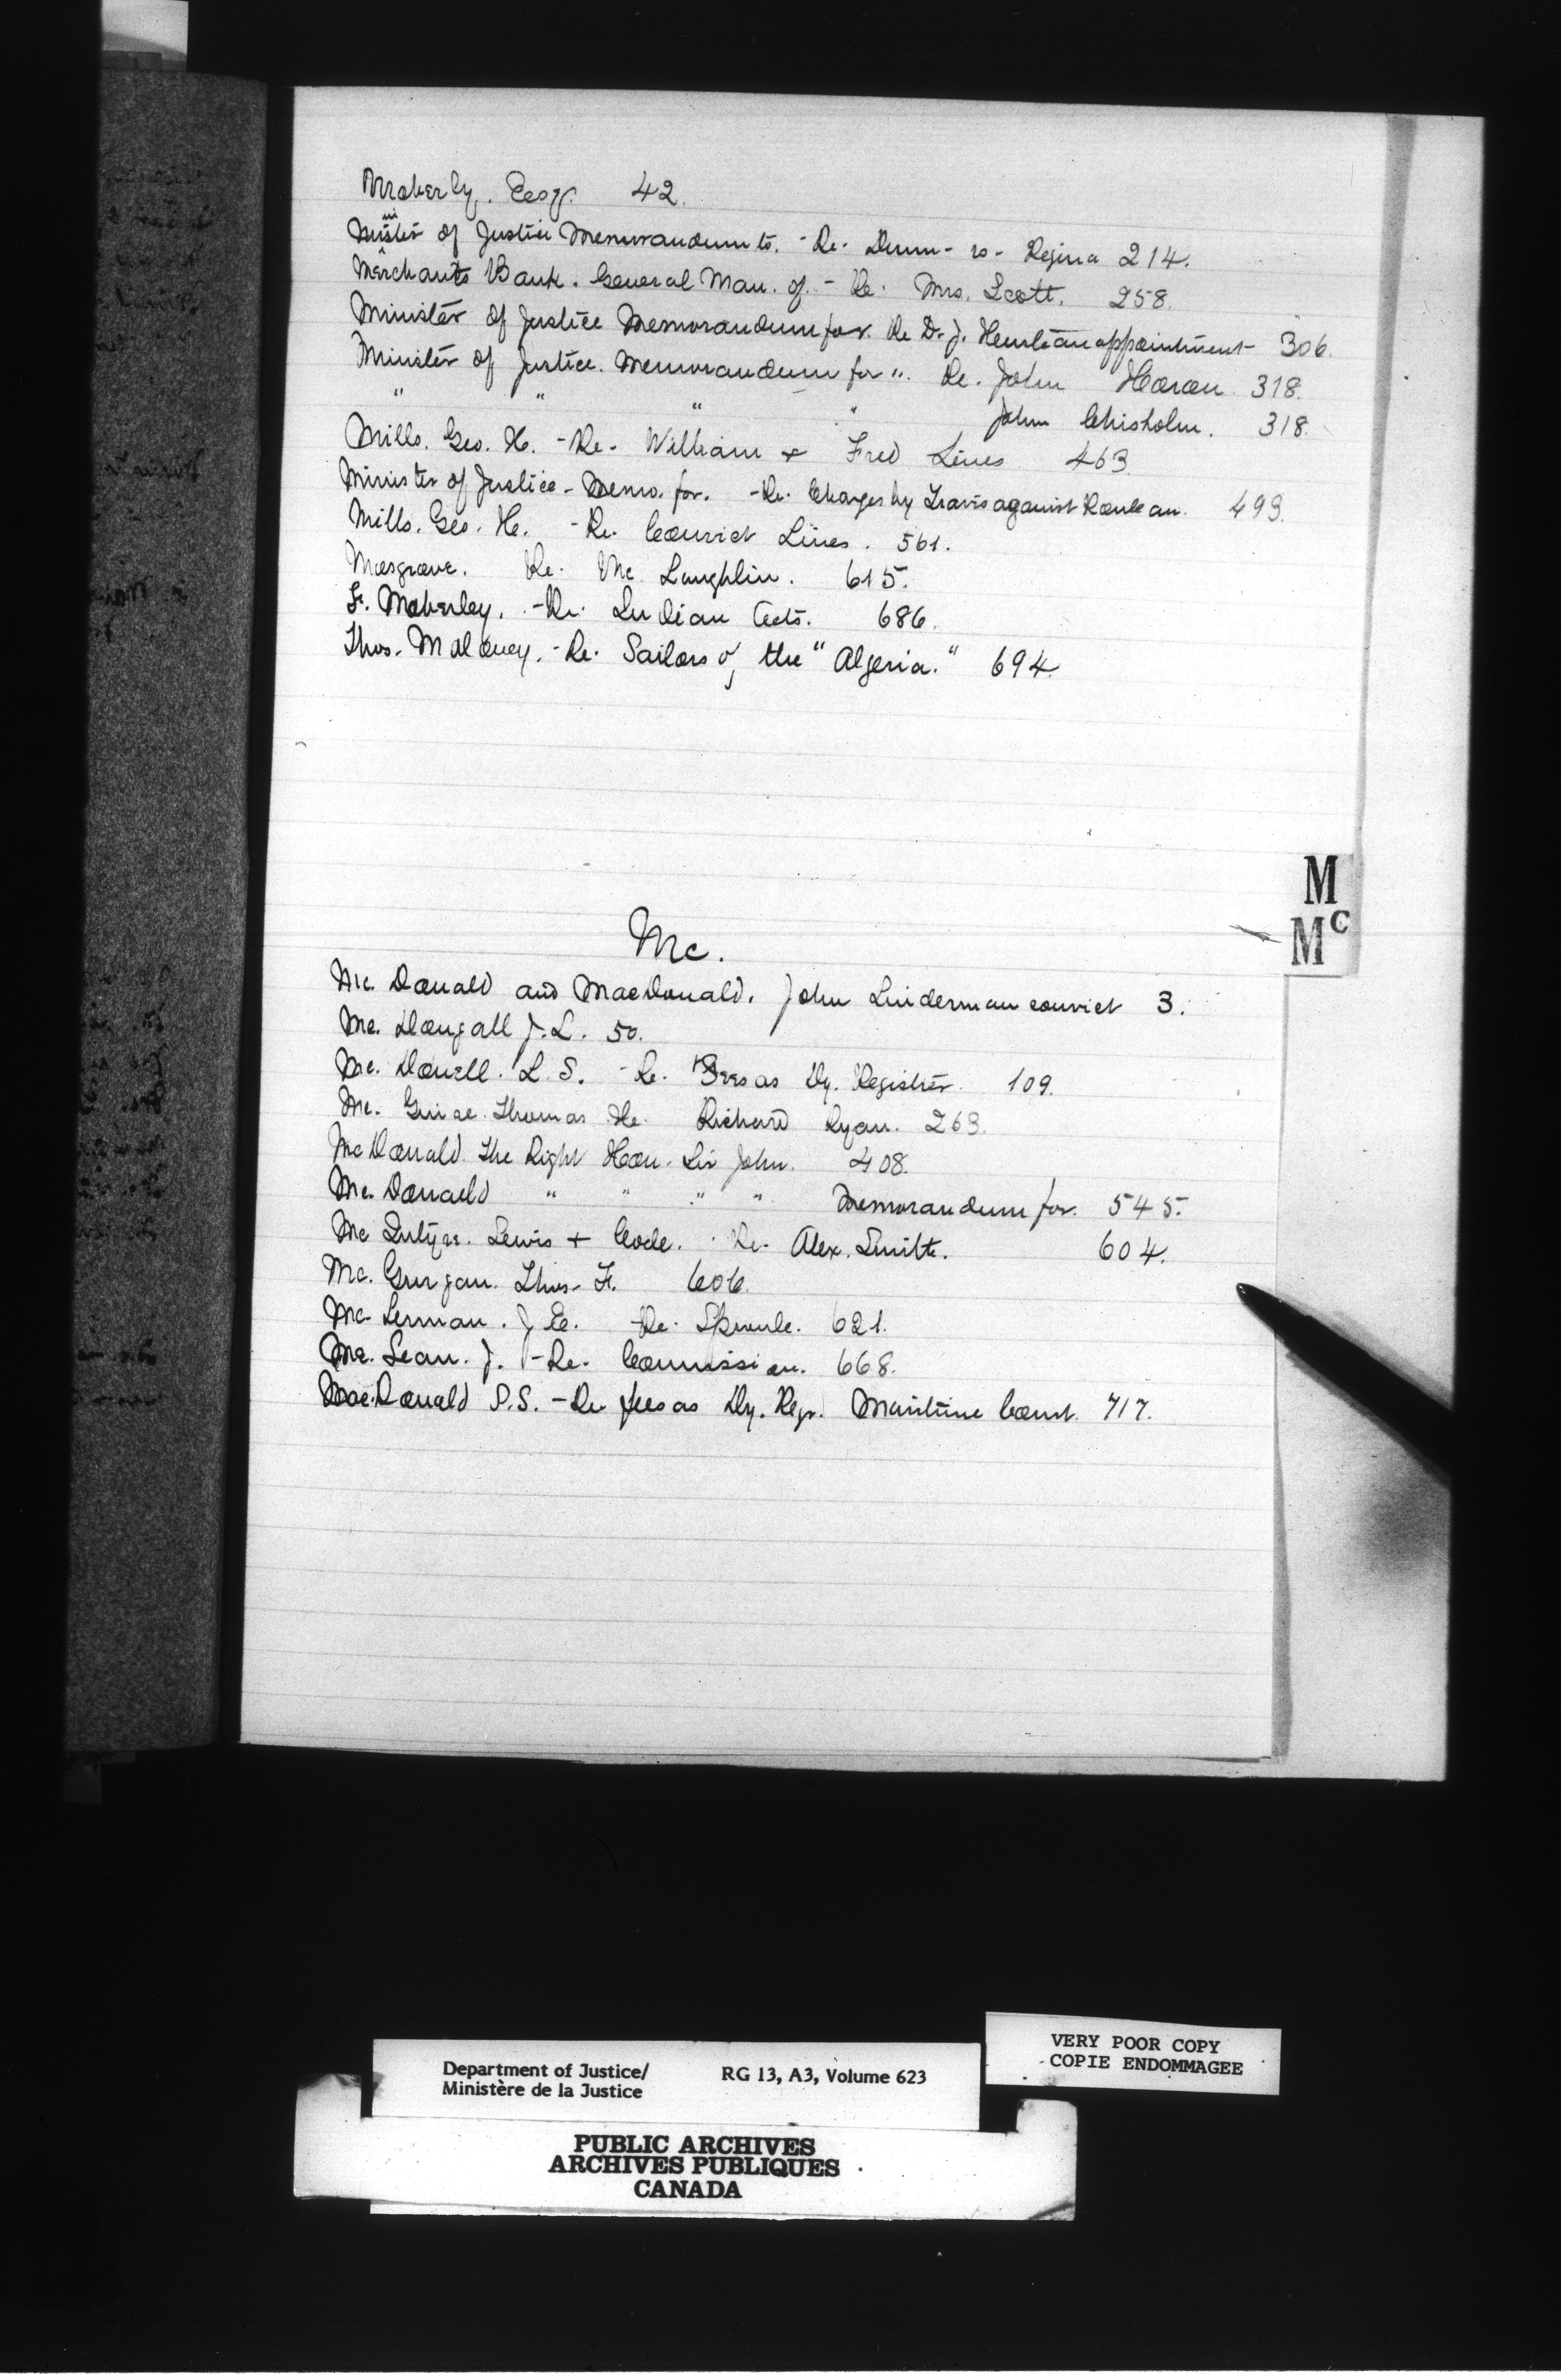 Moberly. Esqr. 42.
Minister of Justice Memorandum to. - Re. Dunn - vs - Regina 214.
Merchants Bank. General Man. of. - Re. Mrs. Scott. 258.
Minister of Justice Memorandum for. Re D. J. appointment 306.
Minister of Justice. Memorandum for ". Re. John Horan 318.
" " " " John Chisholm. 318.
Mills. Geo. H. - Re. William + Fred Lines 463.
Minister of Justice - Memo. for. - Re. Charges by Travis against Rouleau. 493.
Mills. Geo. H. - Re. Convict Lines. 561.
Mosgrove. Re. Mc. Laughlin. 615.
F. Moberley. - Re. Indian Acts. 686.
Thos. Maloney. - Re. Sailors of the "Algeria." 694.
M
Mc
Mc.
Mc. Donald and MacDonald. John Linderman convict 3.
Mc. Dougall J. L. 50.
Mc. Donell. L. S. - Re. Fees as Dy. Registrar. 109.
Mc. Guire. Thomas Re. Richard Ryan. 263.
McDonald. The Right Hon. Sir John. 408.
Mc. Donald " " " " Memorandum for. 545.
Mc Intyre. Lewis + Code. Re. Alex. Smith. 604.
Mc. Thos. F. 606.
Mc Lennan. J. E. Re. Sproule. 621.
Mc. Lean. J. - Re. Commission. 668.
MacDonald S.S. - Re fees as Dy. Regr. Maritime Court. 717.
Department of Justice/ RG 13, A3, Volume 623
Ministère de la Justice
VERY POOR COPY
COPIE ENDOMMAGEE
PUBLIC ARCHIVES
ARCHIVES PUBLIQUES
CANADA